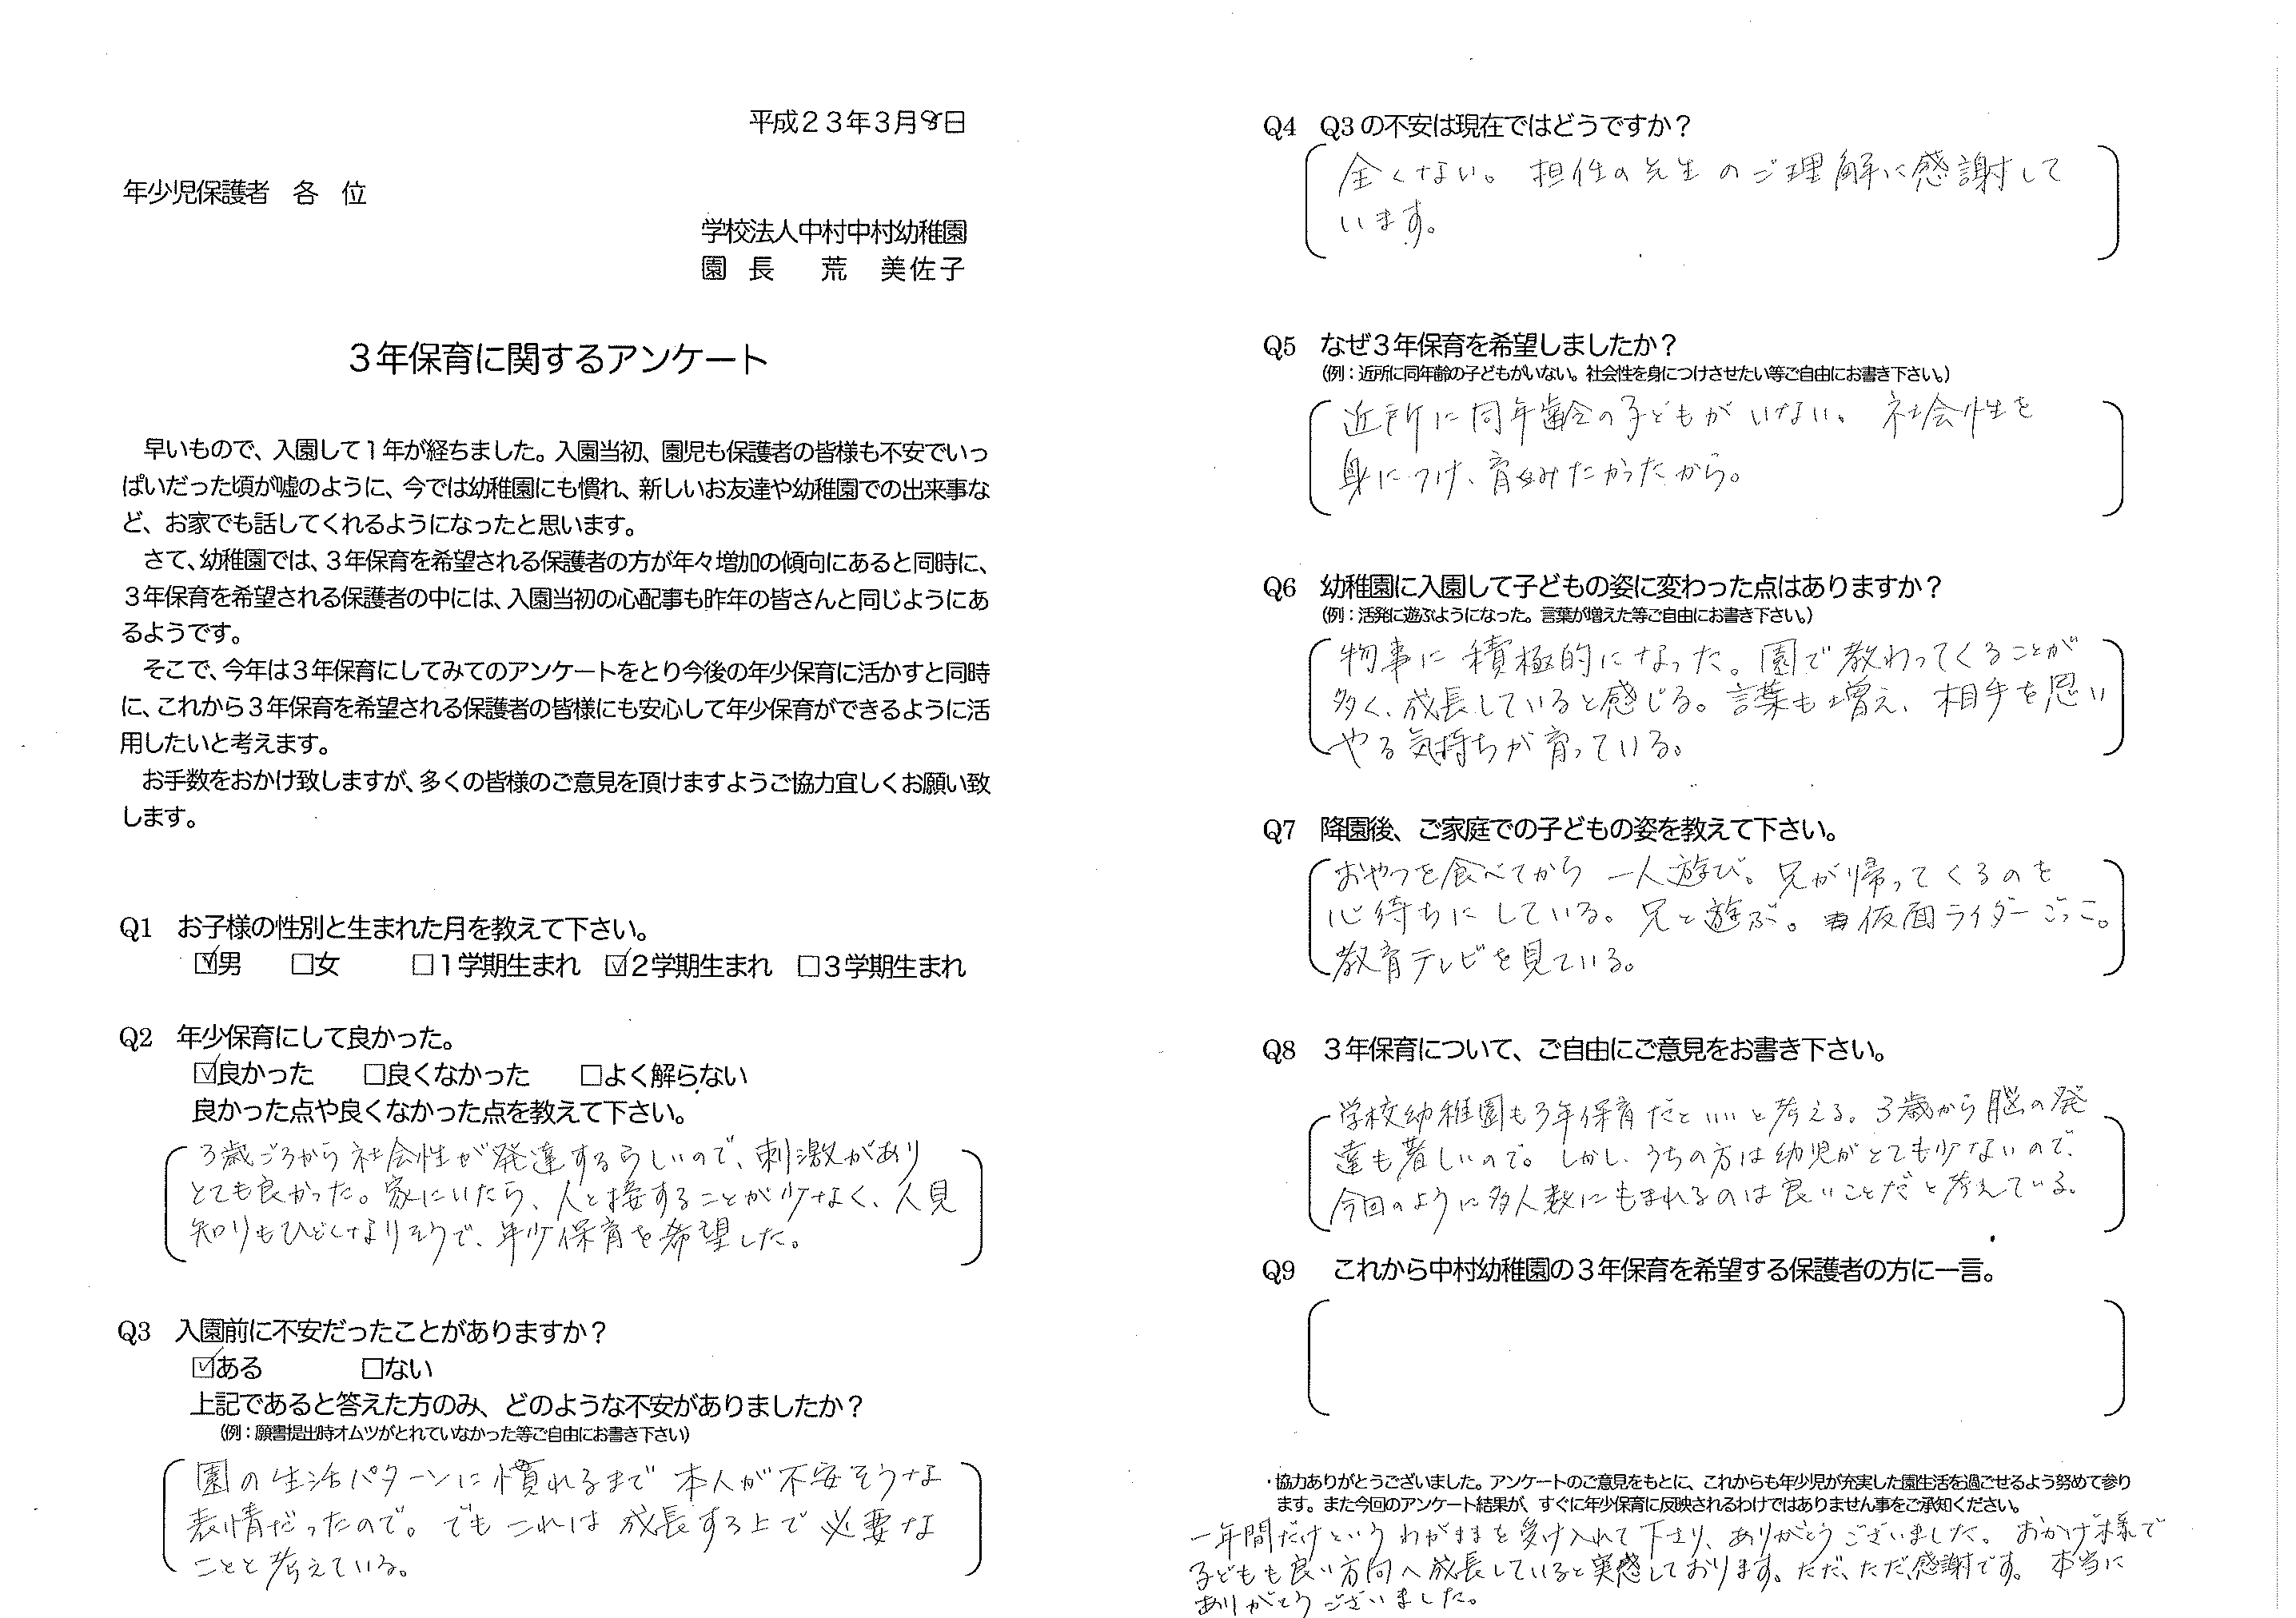 平成２３年３月８日
年少児保護者　各　位
学校法人中村中村幼稚園
園　長　　荒　美佐子
３年保育に関するアンケート
早いもので、入園して１年が経ちました。入園当初、園児も保護者の皆様も不安でいっ
ぱいだった頃が嘘のように、今では幼稚園にも慣れ、新しいお友達や幼稚園での出来事な
ど、お家でも話してくれるようになったと思います。
さて、幼稚園では、３年保育を希望される保護者の方が年々増加の傾向にあると同時に、
３年保育を希望される保護者の中には、入園当初の心配事も昨年の皆さんと同じようにあ
るようです。
そこで、今年は３年保育にしてみてのアンケートをとり今後の年少保育に活かすと同時
に、これから３年保育を希望される保護者の皆様にも安心して年少保育ができるように活
用したいと考えます。
お手数をおかけ致しますが、多くの皆様のご意見を頂けますようご協力宜しくお願い致
します。
Q1　お子様の性別と生まれた月を教えて下さい。
☑男　□女　□１学期生まれ　☑２学期生まれ　□３学期生まれ
Q2　年少保育にして良かった。
☑良かった　□良くなかった　□よく解らない
良かった点や良くなかった点を教えて下さい。
3歳ごろから社会性が発達するらしいので、刺激があり
とても良かった。家にいたら、人と接することが少なく、人見
知りもひどくなりそうで、年少保育を希望した。
Q3　入園前に不安だったことがありますか？
☑ある　□ない
上記であると答えた方のみ、どのような不安がありましたか？
（例：願書提出時オムツがとれていなかった等ご自由にお書き下さい）
園の生活パターンに慣れるまで本人が不安そうな
表情だったので。でもこれは成長する上で必要な
ことと考えている。
Q4　Q3の不安は現在ではどうですか？
全くない。担任の先生のご理解に感謝して
います。
Q5　なぜ３年保育を希望しましたか？
（例：近所に同年齢の子どもがいない。社会性を身につけさせたい等ご自由にお書き下さい。）
近所に同年齢の子どもがいない。社会性を
身につけ、育みたかったから。
Q6　幼稚園に入園して子どもの姿に変わった点はありますか？
（例：活発に遊ぶようになった。言葉が増えた等ご自由にお書き下さい。）
物事に積極的になった。園で教わってくることが
多く、成長していると感じる。言葉も増え、相手を思い
やる気持ちが育っている。
Q7　降園後、ご家庭での子どもの姿を教えて下さい。
おやつを食べてから一人遊び。兄が帰ってくるのを
心待ちにしている。兄と遊ぶ。仮面ライダーごっこ。
教育テレビを見ている。
Q8　３年保育について、ご自由にご意見をお書き下さい。
学校幼稚園も3年保育だといいと考える。3歳から脳の発
達も著しいので。しかし、うちの方は幼児がとても少ないので、
今回のように多人数にもまれるのは良いことだと考えている。
Q9　これから中村幼稚園の３年保育を希望する保護者の方に一言。
・協力ありがとうございました。アンケートのご意見をもとに、これからも年少児が充実した園生活を過ごせるよう努めて参り
ます。また今回のアンケート結果が、すぐに年少保育に反映されるわけではありません事をご承知ください。
一年間だけというわがままを受け入れて下さり、ありがとうございました。おかげ様で
子どもも良い方向へ成長していると実感しております。ただ、ただ、感謝です。本当に
ありがとうございました。